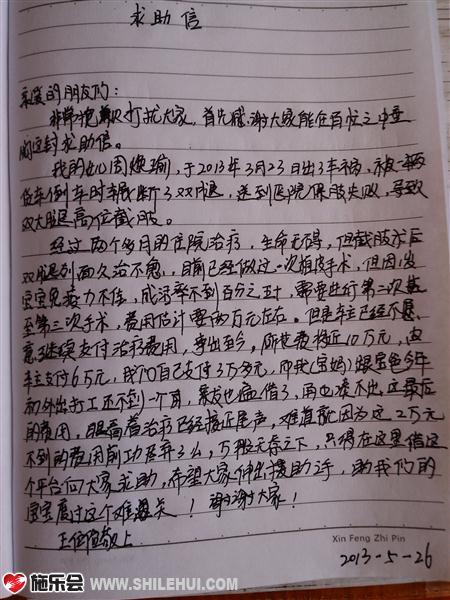 求助信
亲爱的朋友们:
非常抱歉打扰大家,首先感谢大家能在百忙之中垂
阅这封求助信。
我的女儿周焕瑜,于2013年3月23日出了车祸,被一辆
货车倒车时辗断了双腿,送到医院保肢失败,导致
双大腿高位截肢。
经过两个多月的住院治疗,生命无碍,但截肢术后
双腿创面久治不愈,目前已经做过一次植皮手术,但因
宝宝免疫力不佳,成活率不到百分之五十,需要进行第二次甚
至第三次手术,费用估计要两万元左右。但是车主已经不愿
意继续支付治疗费用,事出至今,所花费将近10万元,由
车主支付6万元,我们自己支付3万多元,而我(宝妈)跟宝爸今年
初外出打工还不到一个月,亲友也都借了,再也凑不出这最后
的费用,眼看着治疗已经接近尾声,难道就因为这2万元
不到的费用前功尽弃了么,万般无奈之下,只得在这里借这
个平台向大家求助,希望大家伸出援助之手,助我们的
宝宝度过这个难关!谢谢大家!
敬上
Xin Feng Zhi Pin
2013-5-26
施乐会 WWW.SHILEHUI.COM